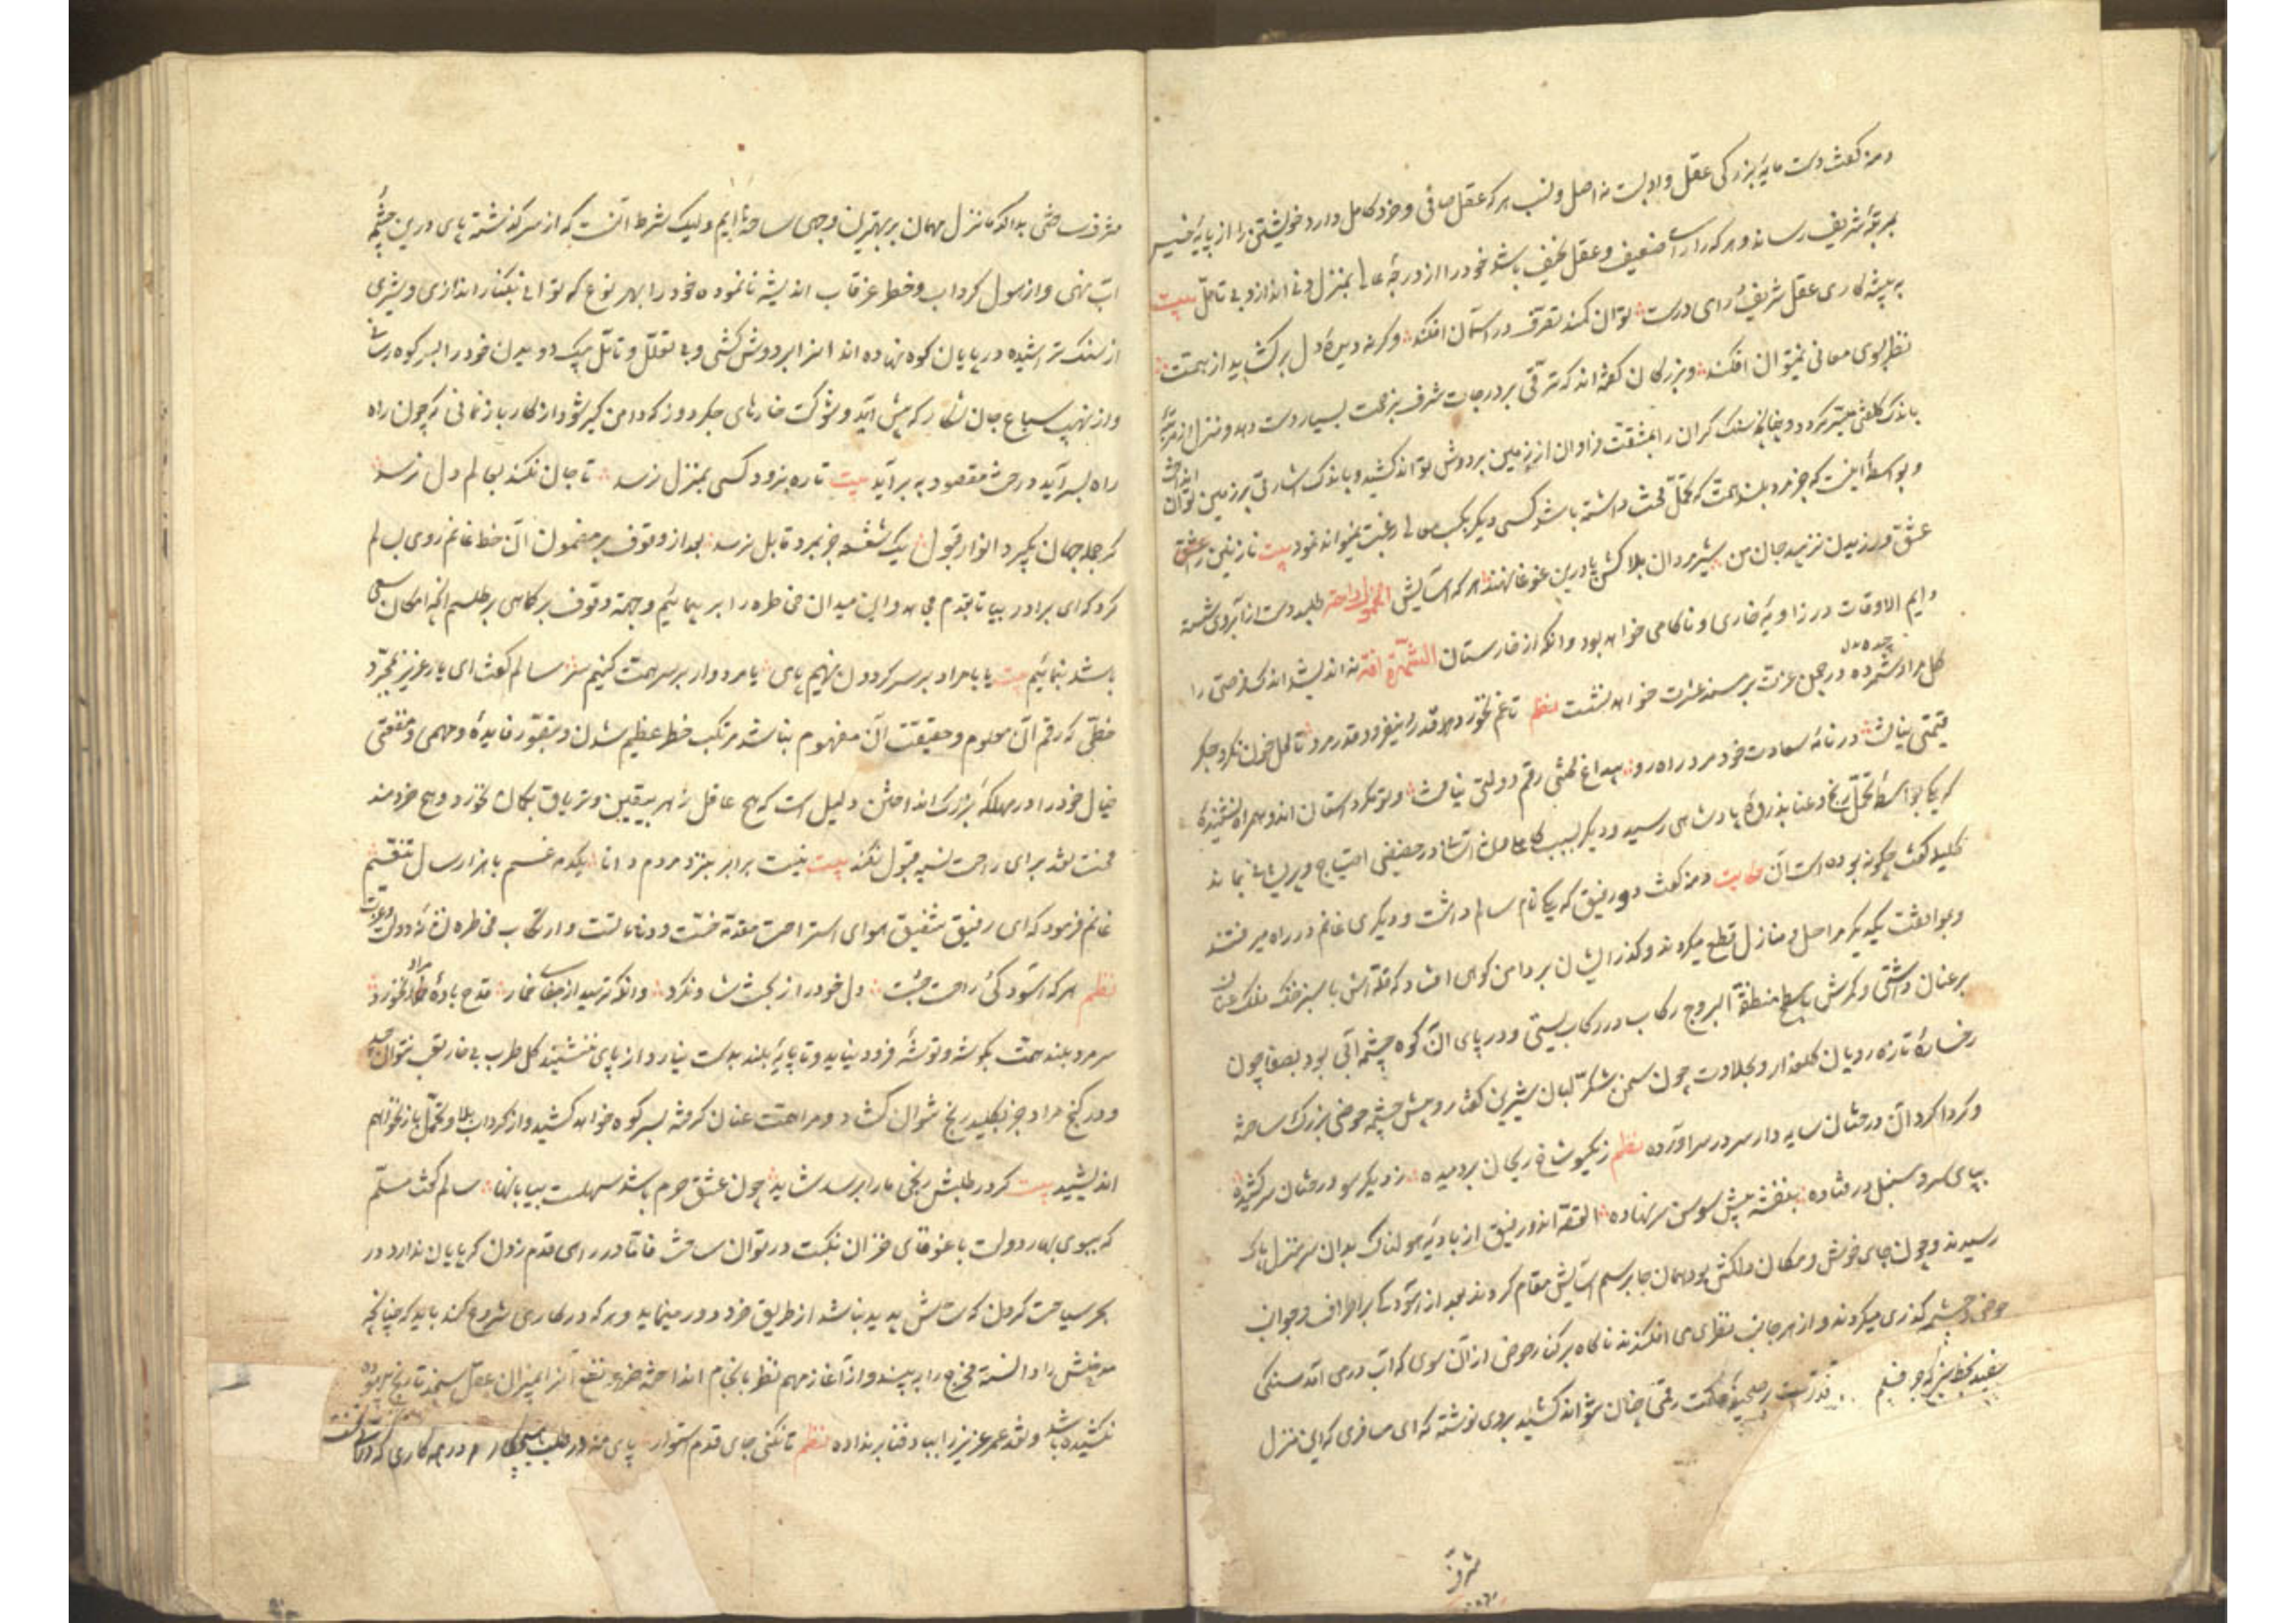 دمنه گفت دست مایهٔ بزرگی عقل و ادبست نه اصل و نسب هر که عقل صافی و خرد کامل دارد خویشتن را از پایهٔ خسیس
بمرتبهٔ شریف رساند و هر که را رای ضعیف و عقل نحیف باشد خود را از درجهٔ عالی بمنزل دنی اندازد بی تامل بیت
به پیشه کاری عقل شریف و رای درست توان کمند تصرف در آسمان افکند وگرنه دیدهٔ دل برگشاید از همت
نظر بسوی معانی نمیتوان افکند و بزرگان گفته اند که ترقی بر درجات شرف بزحمت بسیار دست دهد و تنزل از مرتبهٔ
باندک کلفتی میسر گردد چنانچه سنگ گران را بمشقت فراوان از زمین بر دوش توان کشید و باندک اشارتی بر زمین توان انداخت
و بواسطهٔ اینست که جز مرد بلند همت که تحمل محنت داشته باشد کسی دیگر بکسب معالی رغبت نمیتواند نمود بیت نازنین را عشق
ورزیدن نزیبد جان من شیر مردان بلاکش پا درین غوغا نهند هر که آسایش الخمول راحة طلبید دست از آبروی شسته
دایم الاوقات در زاویهٔ خاری و ناکامی خواهد بود و آنکه از خارستان الشهرة آفة نه اندیشد اندک فرصتی را
گل مراد چیده در چمن عزت بر مسند عشرت خواهد نشست نظم تا غم نخورد و درد نیفزود قدر مرد تا لعل خون نکرد جگر
قیمتی نیافت در نامهٔ سعادت خود مرد راه رو بیداغ محنتی رقم دولتی نیافت و تو مگر داستان آن دو همراه نشنیدهٔ
که یکی بواسطهٔ تحمل رنج و عنا بذروهٔ پادشاهی رسید و دیگر بسبب کاهلی و تن آسانی در حضیض احتیاج و پریشانی بماند
کلیله گفت چگونه بوده است آن حکایت دمنه گفت دو رفیق که یکی نام سالم داشت و دیگری غانم در راه میرفتند
و بموافقت یکدیگر مراحل و منازل قطع میکردند و گذر ایشان بر دامن کوهی افتاد که قله آتش با سبز خنگ فلک عنان
بر عنان داشتی و کمرش باسطح منطقة البروج رکاب در رکاب بستی و در پای آن کوه چشمه آبی بود بصفا چون
رخسارهٔ تازه رویان گلعذار و بحلاوت چون سخن شکر لبان شیرین گفتار و پیش چشمه حوضی بزرگ ساخته
و گرداگرد آن درختان سایه دار سر در سر آورده نظم ز یکسو شاخ ریحان بر دمیده ز دیگر سو درختان سر کشیده
بپای سرو سنبل در فتاده بنفشه پیش سوسن سر نهاده القصه آن دو رفیق از بادیهٔ هولناک بدان سر منزل پاک
رسیدند و چون جای خوش و مکان دلکش بود همان جا برسم آسایش مقام کردند بعد از آسودگی بر اطراف و جوانب
حوض و چشمه گذری میکردند و از هر جانب نظری می افکندند ناگاه بر کنار حوض از آن سوی که آب درمی آمد سنگی
سفید بخط سبز که جز قلم قدرت بر صحیفهٔ حکمت رقمی چنان نتواند کشید بر وی نوشته که ای مسافری که این منزل
مشرف
مشرف ساختی بدانکه ما نزل مهمان بر بهترین وجهی ساخته ایم و لیک شرط آنست که از سر گذشته پای درین چشمهٔ
آب نهی و از هول گرداب و خطر غرقاب اندیشه نانموده خود را بهر نوع که توانی بکنار اندازی و شیری
از سنگ تراشیده در پایان کوه نهاده اند آنرا بر دوش کشی و بی تعلل و تامل بیک دویدن خود را بسر کوه رسانی
و از نهیب سباع جان شکار که پیش آید و شوکت خارهای جگر دوز که دامن گیر شود از کار باز نمانی که چون راه
راه بسر آید درخت مقصود به بر آید بیت تا ره نرود کسی بمنزل نرسد تا جان نکند بعالم دل نرسد
گر جمله جهان بگیرد انوار قبول یک شعشعه جز بمرد قابل نرسد بعد از وقوف بر مضمون آن خط غانم روی بسالم
کرد که ای برادر بیا تا بقدم مجاهده این میدان مخاطره را بر پیمائیم و جهة وقوف بر کماهی بر طلسم آنچه امکان سعی
باشد بنمائیم بیت یا با مراد بر سر گردون نهیم پای یا مردوار بر سر همت کنیم سر سالم گفت ای یار عزیز بمجرد
خطی که رقم آن معلوم و حقیقت آن مفهوم نباشد مرتکب خطر عظیم شدن و بتصور فایدهٔ وهمی و منفعتی
خیال خود را در مهلکهٔ بزرگ انداختن دلیل است که هیچ عاقل زهر بیقین و تریاق بگمان نخورد و هیچ خردمند
محنت نقد برای راحت نسیه قبول نکند بیت نیست برابر بنزد مردم دانا یکدمه غم با هزار سال تنعم
غانم فرمود که ای رفیق شفیق هوای استراحت مقدمهٔ خست و دنائتست و ارتکاب مخاطره نشانهٔ دولت و عزت
نظم هر که آسودگی و راحت جست دل خود را ز بخت شاد نکرد وانکه ترسید از جفای خمار قدح بادهٔ مراد نخورد
سر مرد بلند همت بگوشه و توشه فرود نیاید و تا پایهٔ بلند بدست نیارد از پای ننشیند گل طرب بی خار تعب نتوان چید
و در گنج مراد جز بکلید رنج نتوان گشاد و مرا همت عنان گرفته بسر کوه خواهد کشید و از گرداب بلا و تحمل باز نخواهم
اندیشید بیت گر در طلبش رنجی ما را برسد شاید چون عشق حرم باشد سهلست بیابانها سالم گفت مسلم
که ببوی بهار دولت با غوغای خزان نکبت در توان ساخت فاما در راهی قدم زدن که پایان ندارد و در
بحر سیاحت کردن که ساحلش پدید نباشد از طریق خرد دور مینماید و هر که در کاری شروع کند باید که چنانچه
مدخلش را دانسته مخرج را به بیند و از آغاز مهم نظر بانجام انداخته ضرر و نفع آنرا بمیزان عقل سنجد تا رنج بیهوده
نکشیده باشد و نقد عمر عزیز را بباد فنا برنداده نظم تا نکنی جای قدم استوار پای منه در طلب هیچ کار در همه کاری که درآیی نخست